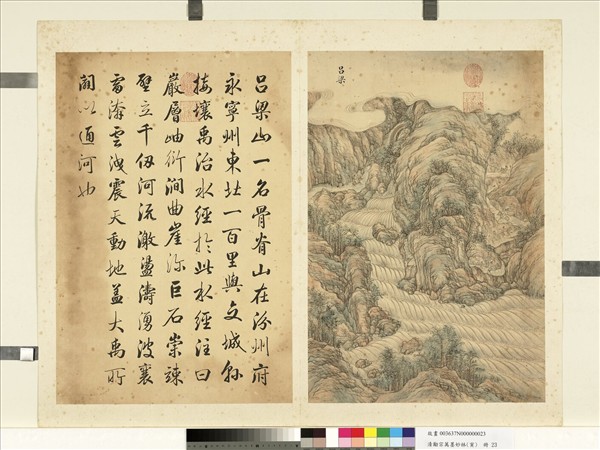 呂梁
呂梁山一名骨脊山在汾州府
永寧州東北一百里與文城縣
接壤禹治水經於此水經注曰
巖層岫衍澗曲崖深巨石崇竦
壁立千仞河流激盪濤湧波襄
雷渀電洩震天動地蓋大禹所
闢以通河也
故畫 003637N000000023